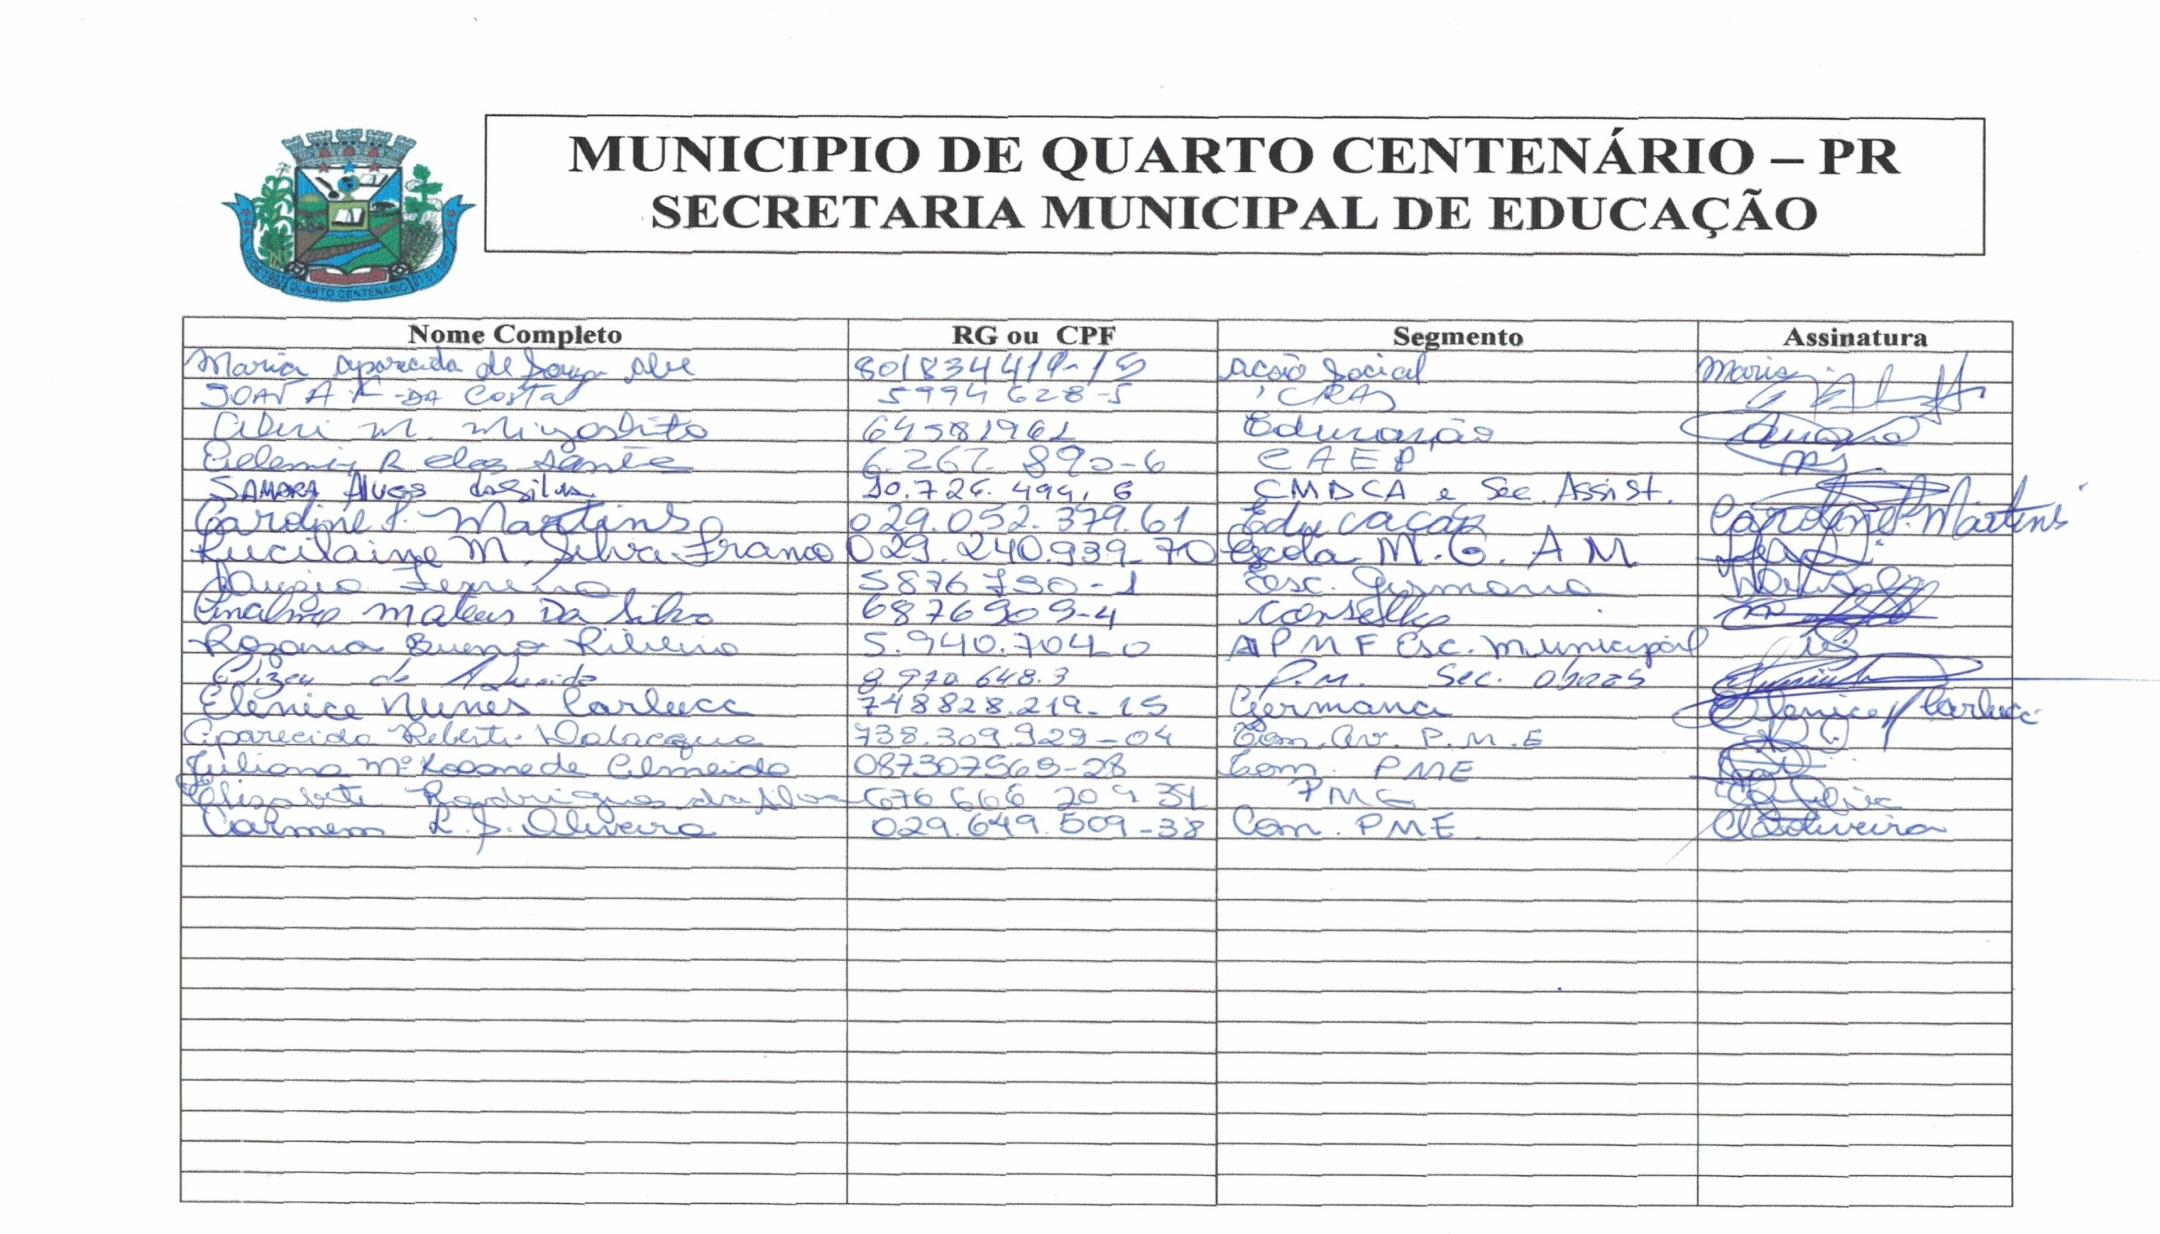 MUNICIPIO DE QUARTO CENTENÁRIO – PR
SECRETARIA MUNICIPAL DE EDUCAÇÃO
QUARTO CENTENÁRIO
Nome Completo RG ou CPF Segmento Assinatura
Maria Aparecida de Souza Ação Social Maria
DA Costa 5994628-5 CRAS
M. Mizoshito 64581961 Educação
R dos Santo 6.267.890-6
SAMARA Alves da Silva 10.726.499,6 CMDCA e Sec. Assist.
Caroline P. Martins 029.052.379.61 Educação Caroline P. Martins
Lucilaine M. Silva Franco 029.240.939-70 Escola M. G. A M
5876790-1 Esc. Germana
Mateus Da Silva 6876909-4 Conselho
Rozana Bueno Ribeiro 5.940.704-0 APMF Esc. Municipal
Elizeu de 8.970.648.3 P.M. Sec. obras
Elenice Nunes Carlucc 748828.219-15 Germana Elenice Carlucc
Aparecida 738.309.929-04 Com. Av. P.M.E
Juliana Mª de Almeida 087307569-28 Com. PME
Elizabete Rodrigues da Silva 676 666 209 34
Carmem L. S. Oliveira 029.649.509-38 Com. PME CLSOliveira